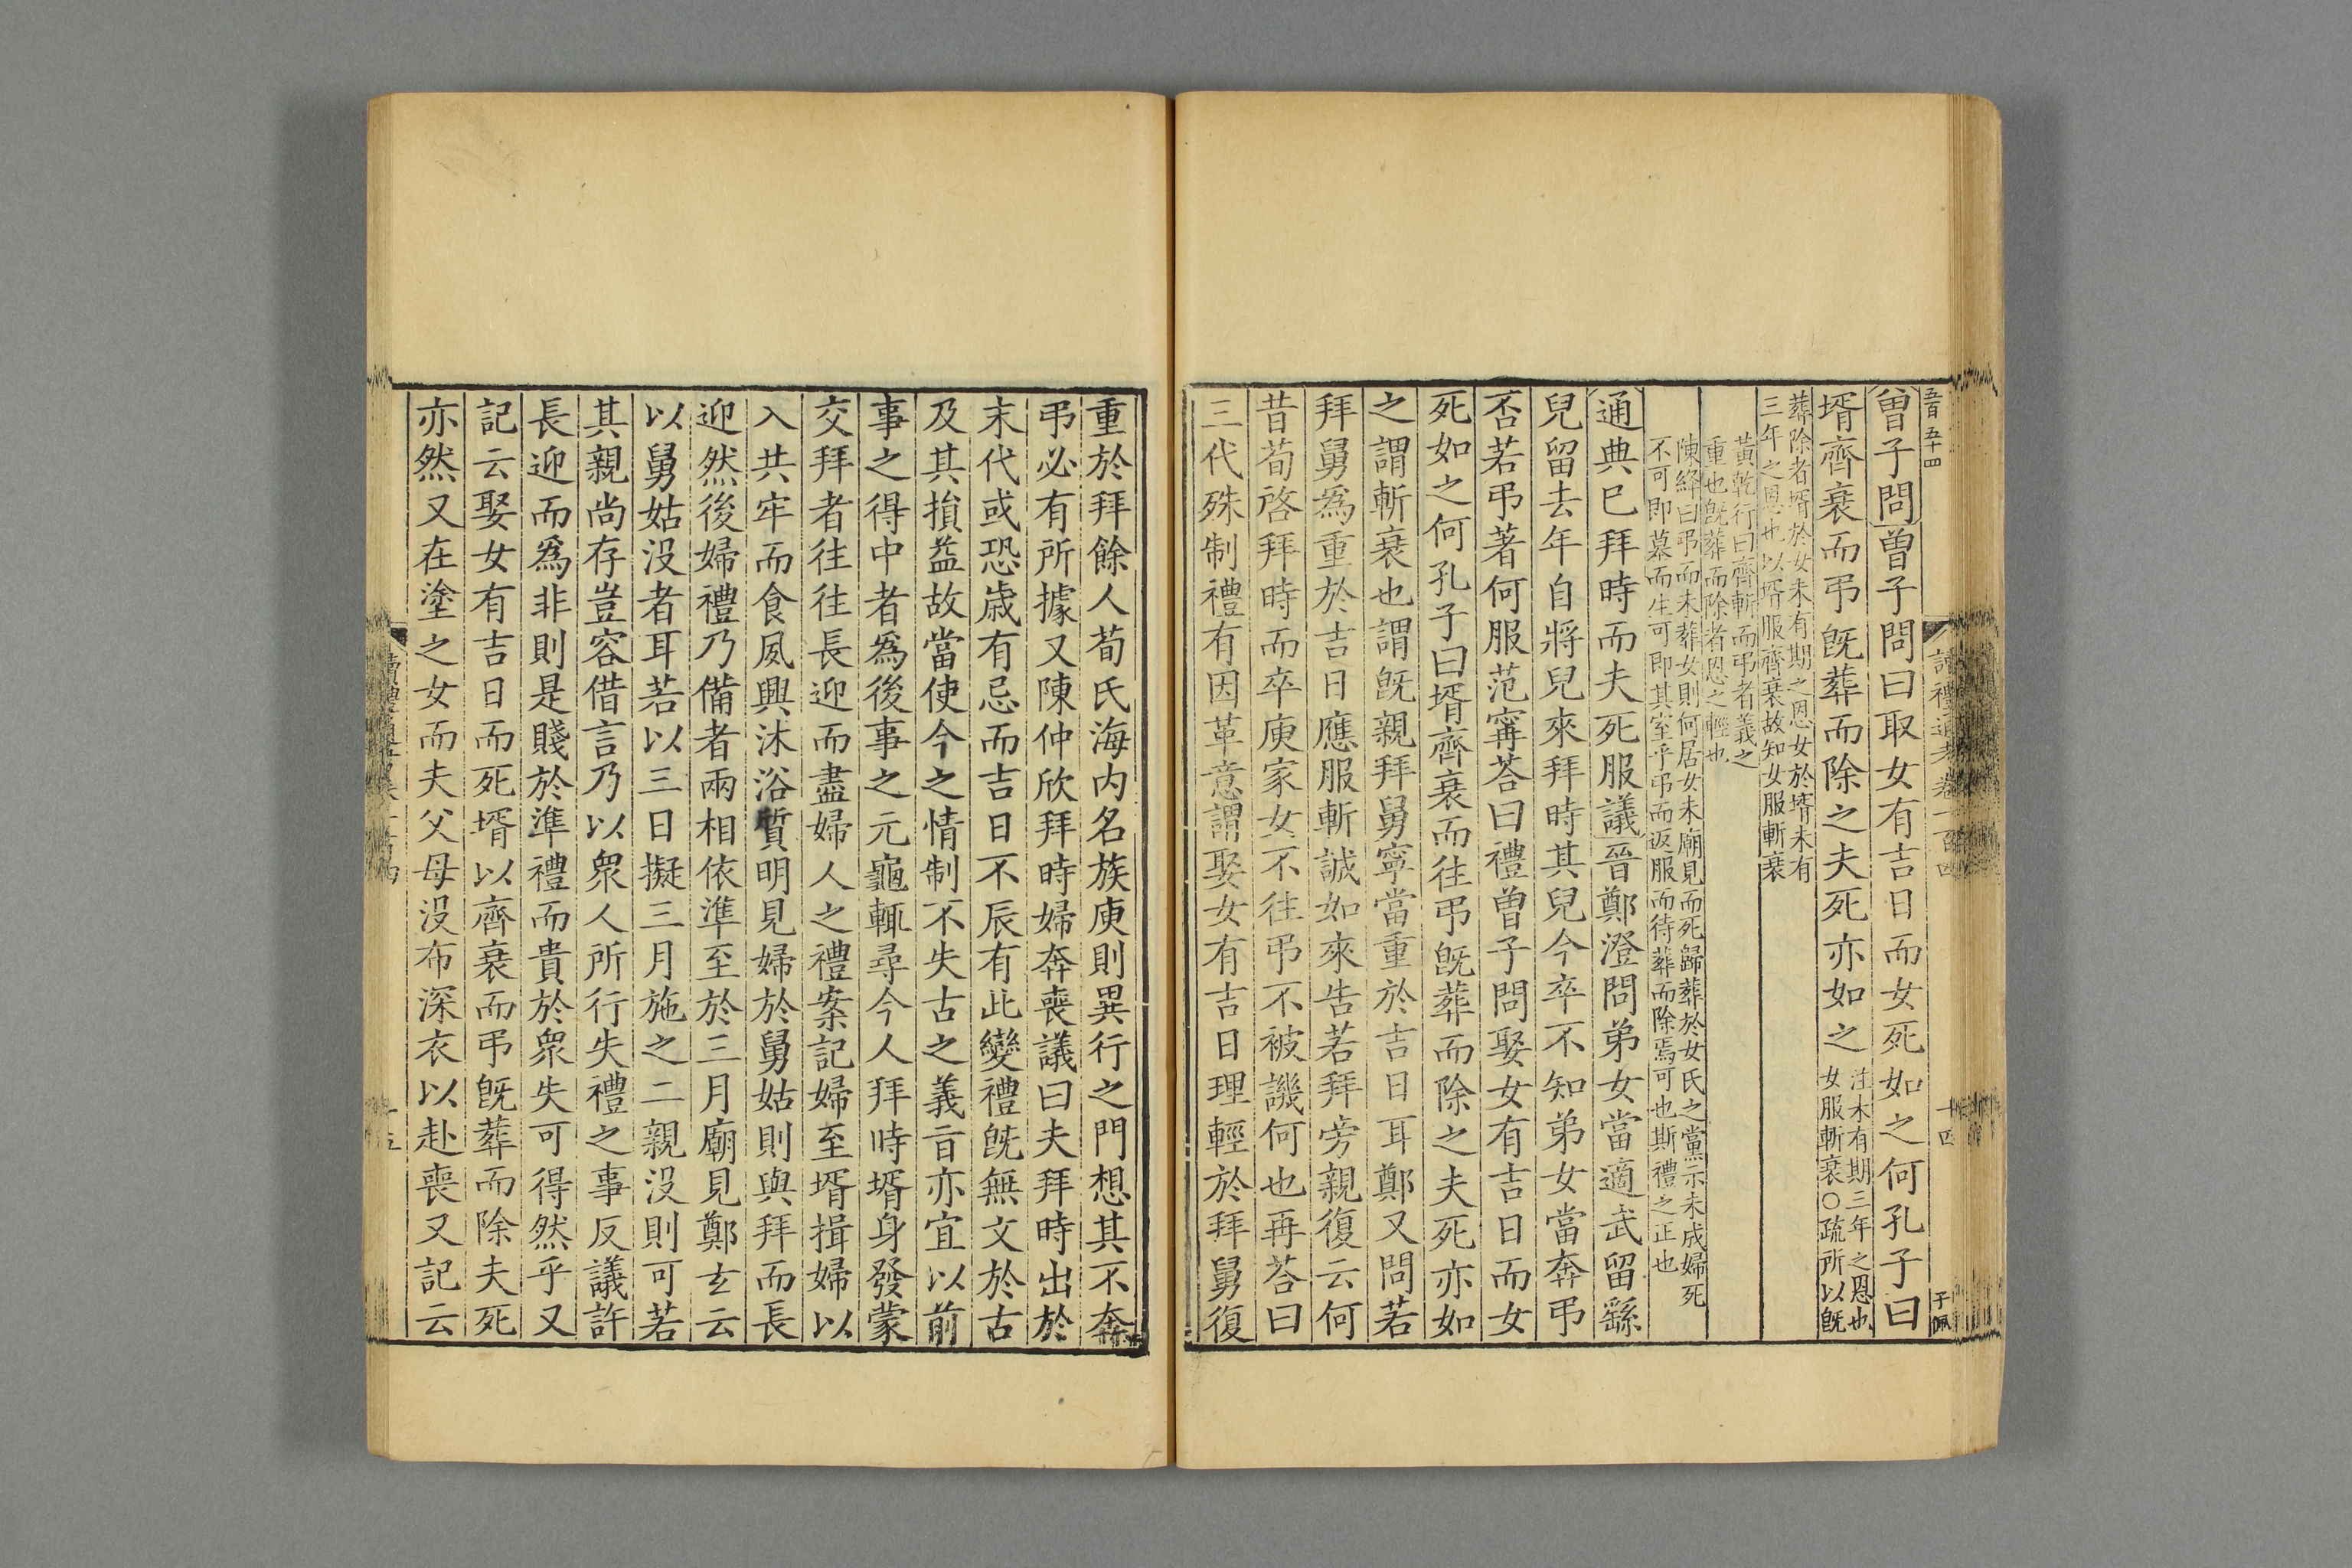 五百五十四
曾子問曾子問曰取女有吉日而女死如之何孔子曰
壻齊衰而弔旣葬而除之夫死亦如之
注未有期三年之恩也
女服斬衰○疏所以旣
葬除者壻於女未有期之恩女於壻未有
三年之恩也以壻服齊衰故知女服斬衰
黃乾行曰齊斬而弔者義之
重也旣葬而除者恩之輕也
陳絳曰弔而未葬女則何居女未廟見而死歸葬於女氏之黨示未成婦死
不可即墓而生可即其室乎弔而返服而待葬而除焉可也斯禮之正也
通典已拜時而夫死服議晉鄭澄問弟女當適武留繇
兒留去年自將兒來拜時其兒今卒不知弟女當奔弔
否若弔著何服范甯荅曰禮曾子問娶女有吉日而女
死如之何孔子曰壻齊衰而往弔旣葬而除之夫死亦如
之謂斬衰也謂旣親拜舅寧當重於吉日耳鄭又問若
拜舅爲重於吉日應服斬誠如來告若拜旁親復云何
昔荀啓拜時而卒庾家女不往弔不被譏何也再荅曰
三代殊制禮有因革意謂娶女有吉日理輕於拜舅復
讀禮通考卷一百四
十四
子佩
重於拜餘人荀氏海内名族庾則異行之門想其不奔
弔必有所據又陳仲欣拜時婦奔喪議曰夫拜時出於
末代或恐歲有忌而吉日不辰有此變禮旣無文於古
及其損益故當使今之情制不失古之義旨亦宜以前
事之得中者爲後事之元龜輒尋今人拜時壻身發蒙
交拜者往往長迎而盡婦人之禮案記婦至壻揖婦以
入共牢而食夙興沐浴質明見婦於舅姑則與拜而長
迎然後婦禮乃備者兩相依準至於三月廟見鄭玄云
以舅姑没者耳若以三日擬三月施之二親没則可若
其親尚存豈容借言乃以衆人所行失禮之事反議許
長迎而爲非則是賤於準禮而貴於衆失可得然乎又
記云娶女有吉日而死壻以齊衰而弔旣葬而除夫死
亦然又在塗之女而夫父母没布深衣以赴喪又記云